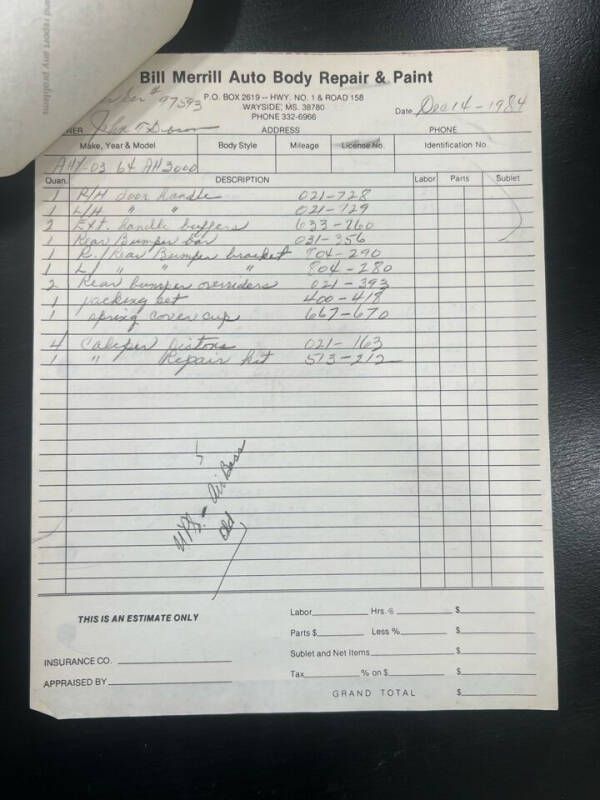 and report any problems
Bill Merrill Auto Body Repair & Paint
P.O. BOX 2619 -- HWY. NO. 1 & ROAD 158
WAYSIDE, MS. 38780
PHONE 332-6966
# 97593
Date Dec 14 - 1984
NER John ADDRESS PHONE
Make, Year & Model Body Style Mileage License No. Identification No.
64 AH3000
Quan. DESCRIPTION Labor Parts Sublet
1 R/H door handle 021-728
1 L/H " " 021-729
2 Ext. handle buffers 633-260
1 Rear Bumper bar 031-356
1 R./Rear Bumper bracket 804-290
1 L / " " " 804-280
2 Rear bumper overriders 021-393
1 packing set 400-418
1 spring cover cup 667-670
4 Caliper Pistons 021-163
1 " Repair kit 513-212
THIS IS AN ESTIMATE ONLY
INSURANCE CO.
APPRAISED BY
Labor Hrs. @ $
Parts $ Less % $
Sublet and Net Items $
Tax % on $ $
GRAND TOTAL $